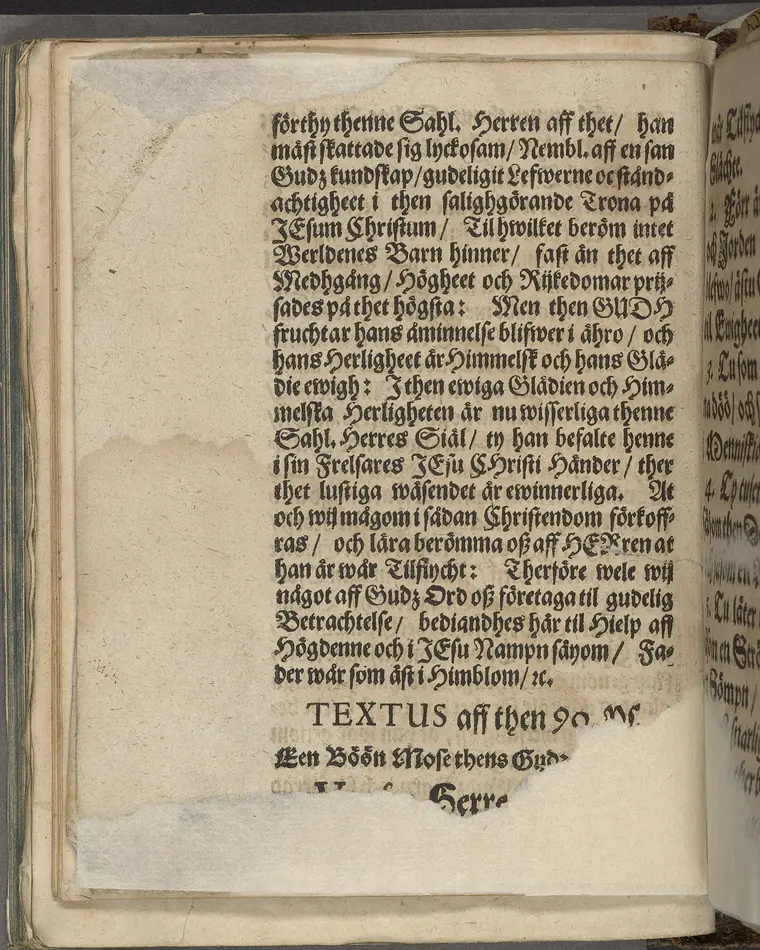 förthy thenne Sahl. Herren aff thet/ han
mäst skattade sig lyckosam/ Nembl. aff en san
Gudz kundskap/ gudeligit Lefwerne oc ständ-
achtigheet i then salighgörande Trona på
JEsum Christum/ Til hwilket beröm intet
Werldenes Barn hinner/ fast än thet aff
Medhgång/ Högheet och Rijkedomar prij-
sades på thet högsta: Men then GUDH
fruchtar hans åminnelse blifwer i ähro/ och
hans Herligheet är Himmelsk och hans Glä-
die ewigh: J then ewiga Glädien och Him-
melska Herligheten är nu wisserliga thenne
Sahl. Herres Siäl/ ty han befalte henne
i sin Frelsares JEsu CHristi Händer/ ther
thet lustiga wäsendet är ewinnerliga. At
och wij mågom i sådan Christendom förkoff-
ras/ och lära berömma oß aff HERren at
han är wår Tilflycht: Therföre wele wij
något aff Gudz Ord oß företaga til gudelig
Betrachtelse/ bediandhes här til Hielp aff
Högdenne och i JEsu Nampn säyom/ Fa-
der wår som äst i Himblom/ ꝛc.
TEXTUS aff then 90
Een Böön Mose thens Gudz
Herre
när Tilflyc
Slächte.
2. Förr ä
och Jorden
til Ewighee
3. Tu som
Menniskio
4. Ty tusen
5. Tu låter
Sömpn/